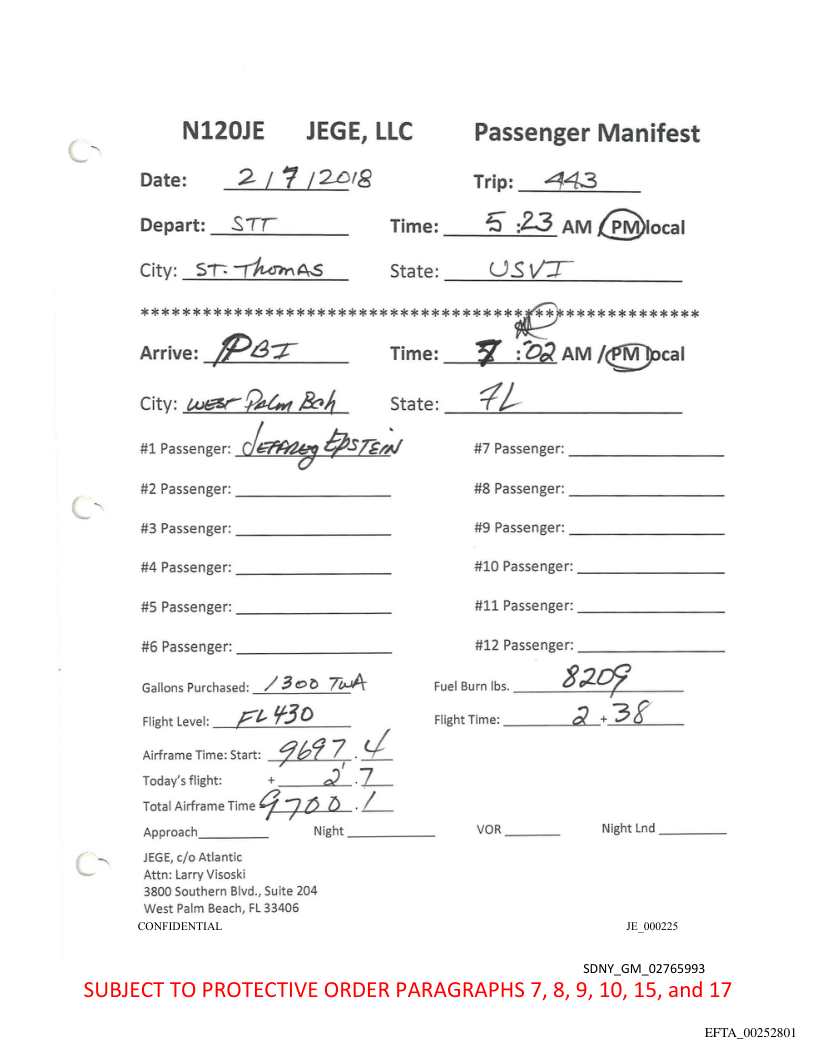 N120JE JEGE, LLC Passenger Manifest
Date: 2 / 7 / 2018 Trip: 443
Depart: STT Time: 5 :23 AM / PM local
City: ST. THomAS State: USVI
******************************************************
Arrive: PBI Time: 7 :02 AM / PM local
City: WEST Palm Bch State: FL
#1 Passenger: JEFFREY EPSTEIN #7 Passenger:
#2 Passenger: #8 Passenger:
#3 Passenger: #9 Passenger:
#4 Passenger: #10 Passenger:
#5 Passenger: #11 Passenger:
#6 Passenger: #12 Passenger:
Gallons Purchased: 1300 TWA Fuel Burn lbs. 8209
Flight Level: FL430 Flight Time: 2 + 38
Airframe Time: Start: 9697 . 4
Today's flight: + 2 . 7
Total Airframe Time 9700 . 1
Approach Night VOR Night Lnd
JEGE, c/o Atlantic
Attn: Larry Visoski
3800 Southern Blvd., Suite 204
West Palm Beach, FL 33406
CONFIDENTIAL JE_000225
SDNY_GM_02765993
SUBJECT TO PROTECTIVE ORDER PARAGRAPHS 7, 8, 9, 10, 15, and 17
EFTA_00252801